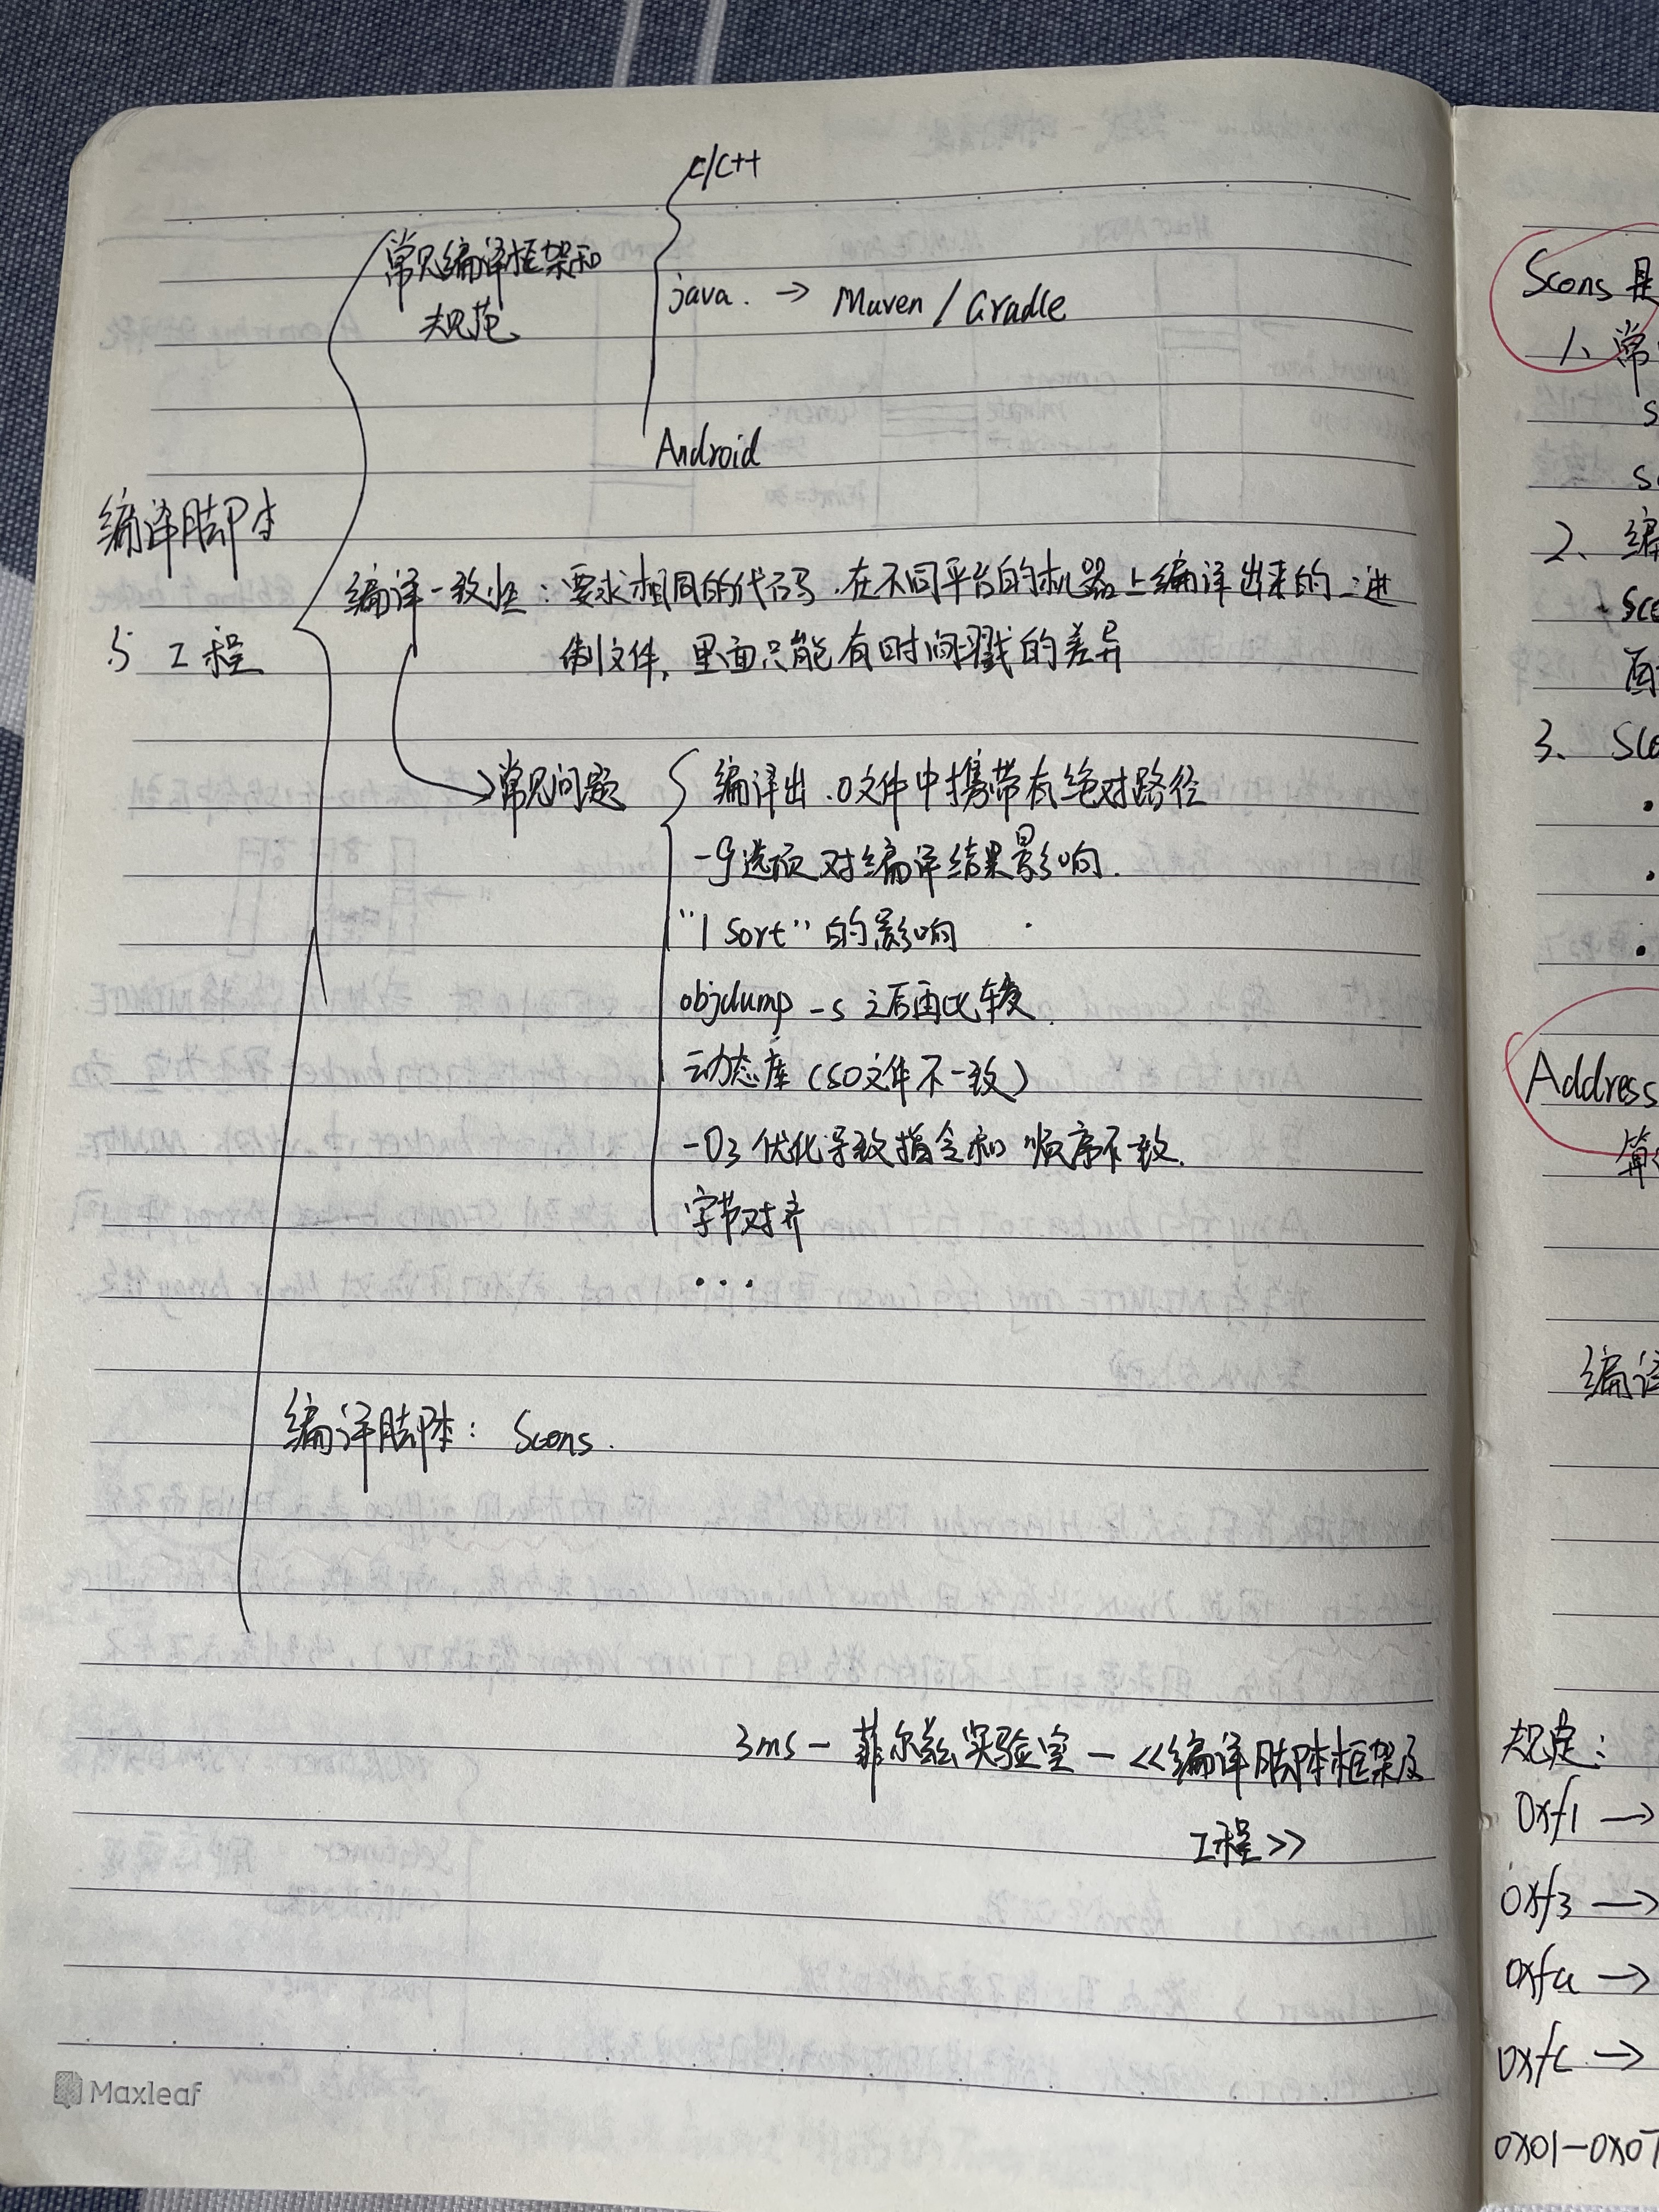 C/C++
常见编译框架和
规范
java. → Maven / Gradle
Android
编译脚本
与 工程
编译一致性：要求相同的代码，在不同平台的机器上编译出来的二进
制文件，里面只能有时间戳的差异
常见问题
编译出 .o文件中携带有绝对路径
-g选项对编译结果影响.
"| sort" 的影响
objdump -s 之后再比较.
动态库（so文件不一致）
-O3 优化导致指令和顺序不一致.
字节对齐
...
编译脚本：Scons.
3ms - 菲尔兹实验室 - <<编译脚本框架及
工程>>
Maxleaf
Scons 是
1、常
2、编
3.
Address
编译
规定：
0xf1 →
0xf3 →
0xfa →
0xfc →
0x01-0x07